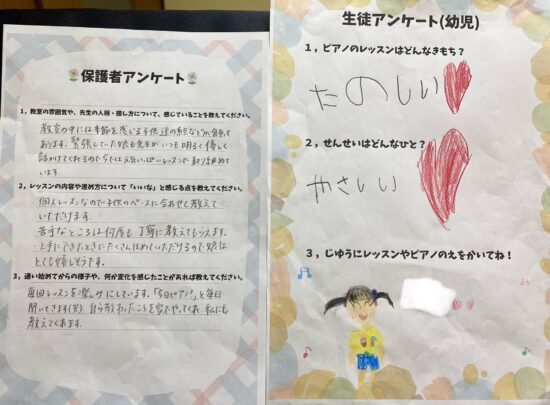 保護者アンケート
1，教室の雰囲気や、先生の人柄・接し方について、感じていることを教えてください。
教室の中には季節を感じる子供達の絵などが飾って
あります。緊張していた娘も先生がいつも明るく優しく
話かけてくれるので今では元気いっぱいレッスンに取り組めて
います。
2，レッスンの内容や進め方について「いいな」と感じる点を教えてください。
個人レッスンなので子供のペースに合わせて教えて
いただけます。
苦手なところは何度も丁寧に教えてもらえます。
上手にできたときにたくさんほめていただけるので娘は
とても嬉しそうです。
3，通い始めてからの様子や、何か変化を感じたことがあれば教えてください。
毎回レッスンを楽しみにしています。「今日ピアノ?」と毎日
聞いてきます(笑) 自ら教わったことを家でやってくれ、私にも
教えてくれます。
生徒アンケート(幼児)
1，ピアノのレッスンはどんなきもち？
たのしい
2，せんせいはどんなひと？
やさしい
3，じゆうにレッスンやピアノのえをかいてね！